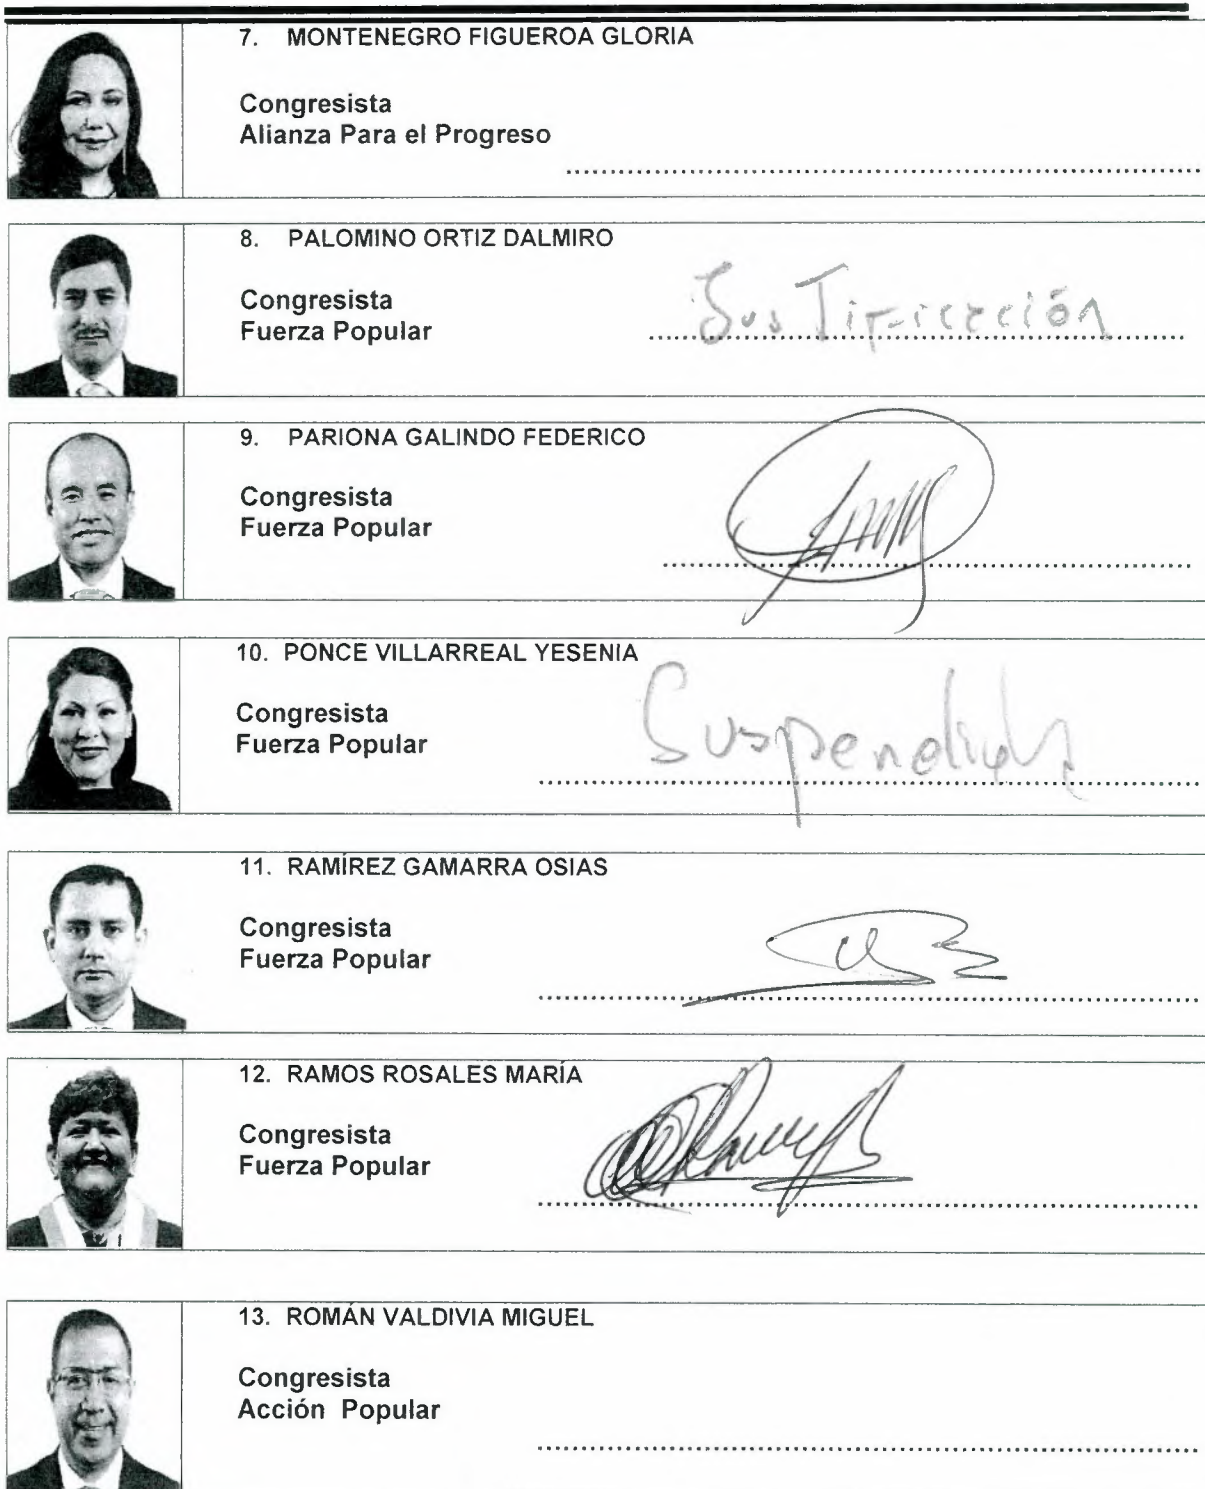 7. MONTENEGRO FIGUEROA GLORIA
Congresista
Alianza Para el Progreso
8. PALOMINO ORTIZ DALMIRO
Congresista
Fuerza Popular
Justificación
9. PARIONA GALINDO FEDERICO
Congresista
Fuerza Popular
10. PONCE VILLARREAL YESENIA
Congresista
Fuerza Popular
Suspendida
11. RAMÍREZ GAMARRA OSIAS
Congresista
Fuerza Popular
12. RAMOS ROSALES MARÍA
Congresista
Fuerza Popular
13. ROMÁN VALDIVIA MIGUEL
Congresista
Acción Popular